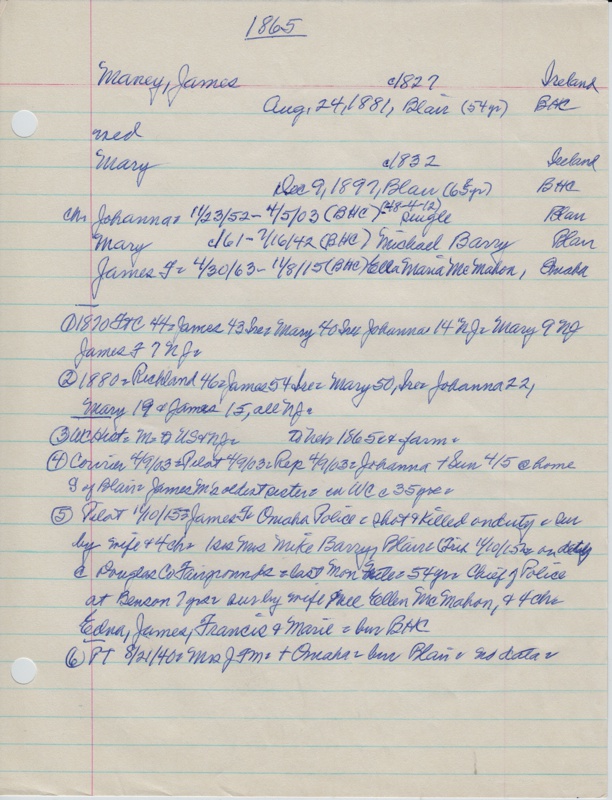 1865
Maney, James c1827 Ireland
Aug. 24, 1881, Blair (54yr) BHC
med
Mary c1832 Ireland
Dec 9, 1897, Blair (65yr) BHC
ch. Johanna = 11/23/52 - 4/5/03 (BHC) - (48-4-12) Single Blair
Mary c/61 - 7/16/42 (BHC) Michael Barry Blair
James F = 4/30/63 - 11/8/15 (BHC) Ella Maria McMahon, Omaha
① 1870 FtC 44 = James 43 Ire = Mary 40 Ire Johanna 14 NJ = Mary 9 NJ
James F 7 NJ =
② 1880 = Richland 46 = James 54 Ire = Mary 50, Ire = Johanna 22,
Mary 19 & James 15, all NJ =
③ WC Hist = M to US & NJ = to Neb 1865 & farm =
④ Courier 4/9/03 = Pilot 4/9/03 = Rep 4/9/03 = Johanna + Sun 4/5 @ home
of Blair = James M's oldest sister = in WC c 35 yrs =
⑤ Pilot 11/10/15 = James F = Omaha Police = shot & killed on duty = sur
by wife & 4 ch = 1 sis Mrs Mike Barry, Blair = 11/10/15 = on duty
@ Douglas Co Fairgrounds = last Mon = 54yr Chief of Police
at Benson 7 yrs = sur by wife nee Ellen McMahon, & 4 ch =
Edna, James, Francis & Marie = bur BHC
⑥ PT 8/21/40 = Mrs J F M = + Omaha = bur Blair = no data =